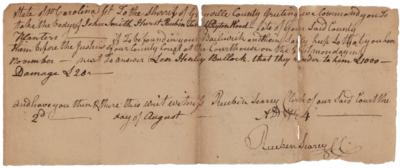 State of No Carolina Ss To the Sherriff of Granville County Greeting we Command you To
take the Body of John Smith Short & Reuben Wood late of Your Said County
Planters if To be found in your Bailiwick and them Safely keep So that you have
them before the Justices of our County Court at the Courthouse on the Monday in
November next to answer Len Henley Bullock that they render to him £1000
Damage £20
And have you then & there this writ witness Reuben Searcy Clerk of our Said Court the
2d day of August
Reuben Searcy CC